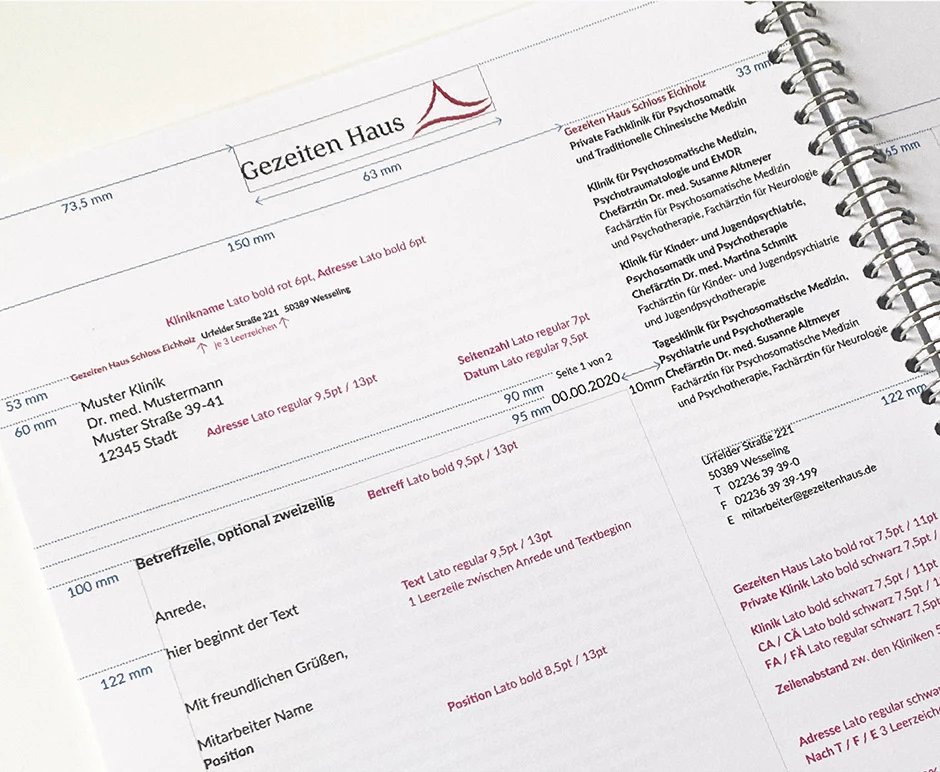 Gezeiten Haus
73,5 mm
63 mm
150 mm
33 mm
65 mm
Gezeiten Haus Schloss Eichholz
Private Fachklinik für Psychosomatik
und Traditionelle Chinesische Medizin
Klinik für Psychosomatische Medizin,
Psychotraumatologie und EMDR
Chefärztin Dr. med. Susanne Altmeyer
Fachärztin für Psychosomatische Medizin
und Psychotherapie, Fachärztin für Neurologie
Klinik für Kinder- und Jugendpsychiatrie,
Psychosomatik und Psychotherapie
Chefärztin Dr. med. Martina Schmitt
Fachärztin für Kinder- und Jugendpsychiatrie
und Jugendpsychotherapie
Tagesklinik für Psychosomatische Medizin,
Psychiatrie und Psychotherapie
Chefärztin Dr. med. Susanne Altmeyer
Fachärztin für Psychosomatische Medizin
und Psychotherapie, Fachärztin für Neurologie
Klinikname Lato bold rot 6pt, Adresse Lato bold 6pt
Gezeiten Haus Schloss Eichholz Urfelder Straße 221 50389 Wesseling
je 3 Leerzeichen
53 mm
60 mm
Muster Klinik
Dr. med. Mustermann
Muster Straße 39-41
12345 Stadt
Adresse Lato regular 9,5pt / 13pt
Seitenzahl Lato regular 7pt
Datum Lato regular 9,5pt
90 mm
Seite 1 von 2
95 mm
00.00.2020
10mm
122 mm
Urfelder Straße 221
50389 Wesseling
T 02236 39 39-0
F 02236 39 39-199
E mitarbeiter@gezeitenhaus.de
Betreff Lato bold 9,5pt / 13pt
Betreffzeile, optional zweizeilig
100 mm
Text Lato regular 9,5pt / 13pt
1 Leerzeile zwischen Anrede und Textbeginn
Anrede,
hier beginnt der Text
122 mm
Mit freundlichen Grüßen,
Mitarbeiter Name
Position
Position Lato bold 8,5pt / 13pt
Gezeiten Haus Lato bold rot 7,5pt / 11pt
Private Klinik Lato bold schwarz 7,5pt /
Klinik Lato bold schwarz 7,5pt / 11pt
CA / CÄ Lato bold schwarz 7,5pt / 1
FA / FÄ Lato regular schwarz 7,5p
Zeilenabstand zw. den Kliniken 5
Adresse Lato regular schwa
Nach T / F / E 3 Leerzeich